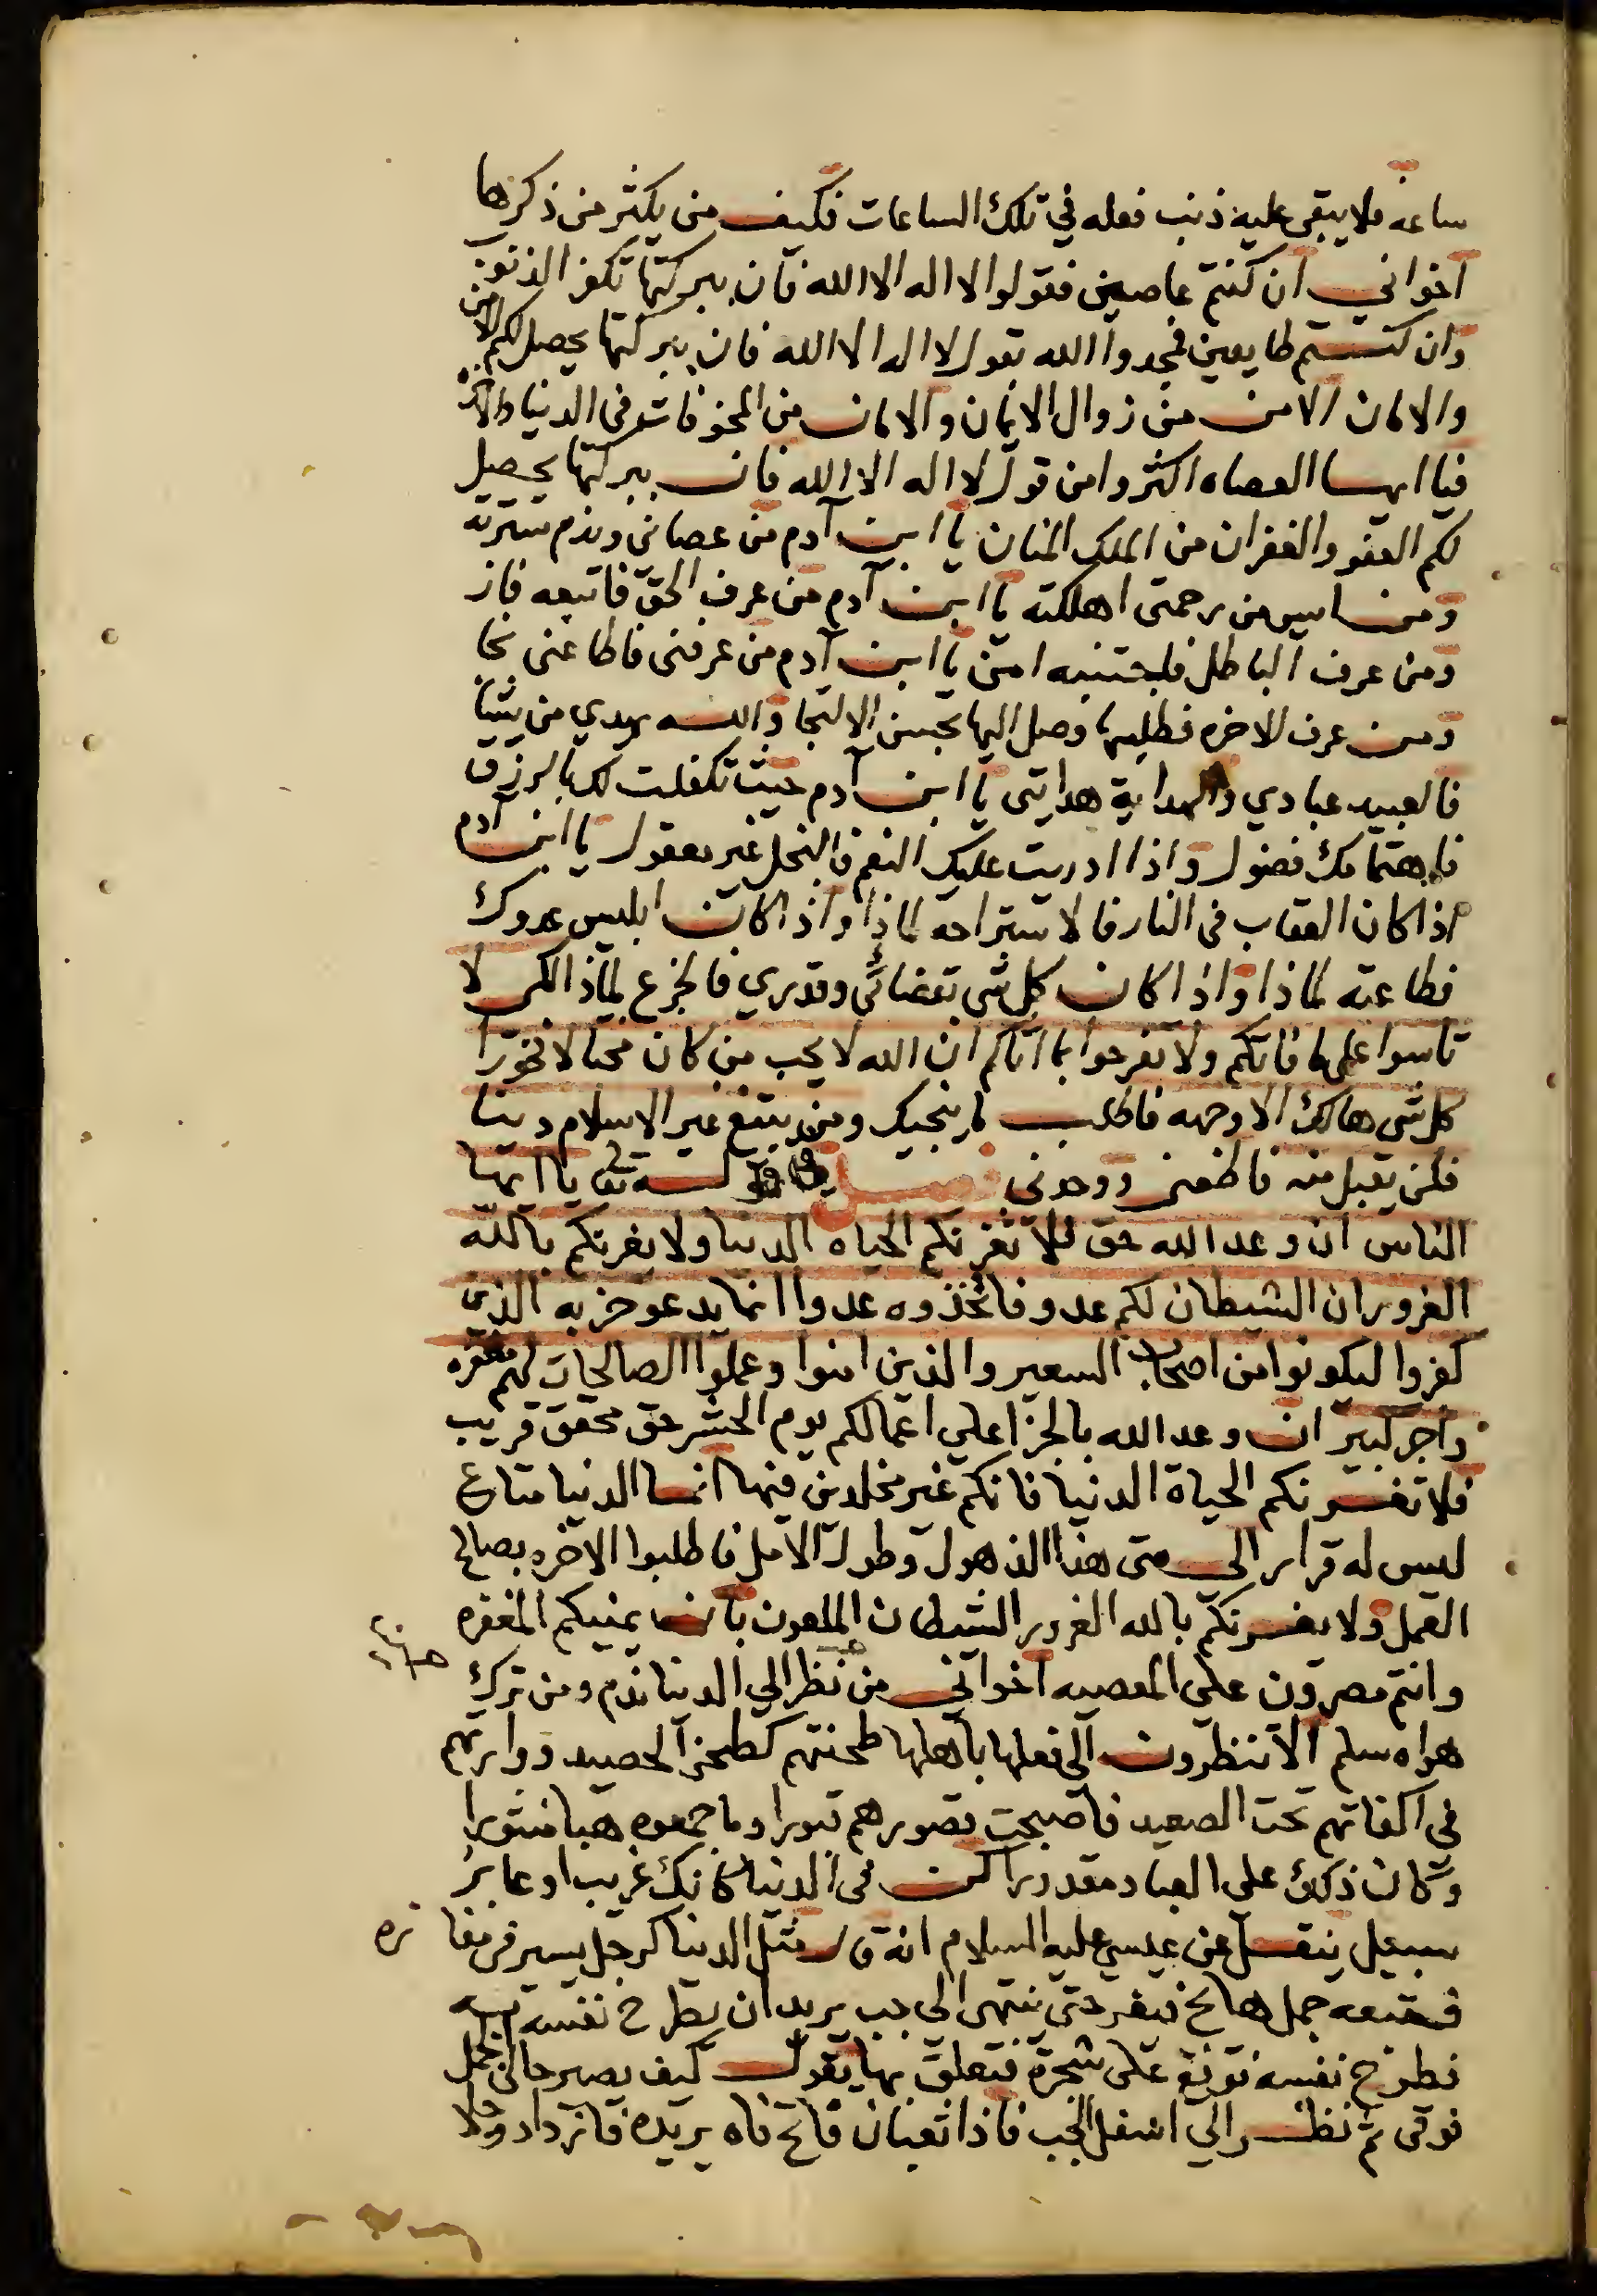 ساعة فلا يبقى عليه ذنب فعله في تلك الساعات فكيف من يكثر من ذكرها
اخواني ان كنتم عاصين فقولوا لا اله الا الله فان ببركتها تكفر الذنوب
وان كنتم طايعين فجددوا الله بقول لا اله الا الله فان ببركتها يحصل لكم الامن
والامان الامن من زوال الايمان والامان من المخوفات في الدنيا والاخره
فيا ايها العصاه اكثروا من قول لا اله الا الله فان ببركتها يحصل
لكم العفو والغفران من الملك المنان يا ابن آدم من عصاني وندم سترته
ومن ايس من رحمتي اهلكته يا ابن آدم من عرف الحق فاتبعه فاز
ومن عرف الباطل فليجتنبه امن يا ابن آدم من عرفني فاطاعني نجا
ومن عرف الاخره فطلبها وصل اليها بحسن الالتجا والله يهدي من يشا
فالعبيد عبادي والهداية هدايتي يا ابن آدم حيث تكفلت لك بالرزق
فاهتمامك فضول واذا ادريت عليك النعم فالبخل غير معقول يا ابن آدم
اذا كان العقاب في النار فالاستراحة لماذا واذا كان ابليس عدوك
فطاعته لماذا واذا كان كل شي بقضائي وقدري فالجزع لماذا لكي لا
تاسوا على ما فاتكم ولا تفرحوا بما اتاكم ان الله لا يحب من كان مختالا فخورا
كل شي هالك الا وجهه فاطلب ما ينجيك ومن يبتغ غير الاسلام دينا
فلن يقبل منه فاطعني ووحدني فصل في قوله تعا يا ايها
الناس ان وعد الله حق فلا تغرنكم الحياه الدنيا ولا يغرنكم بالله
الغرور ان الشيطان لكم عدو فاتخذوه عدوا انما يدعو حزبه الذين
كفروا ليكونوا من اصحاب السعير والذين امنوا وعملوا الصالحات لهم مغفره
واجر كبير ان وعد الله بالجزا على اعمالكم يوم الحشر حق محقق قريب
فلا تغرنكم الحياة الدنيا فانكم غير مخلدين فيها انما الدنيا متاع
ليس له قرار الى متى هذا الذهول وطول الامل فاطلبوا الاخره بصالح
العمل ولا يغرنكم بالله الغرور الشيطان الملعون بان يمنيكم المغفره
وانتم مصرون على المعصيه اخواني من نظر الي الدنيا ندم ومن ترك
هواه سلم الا تنظرون الى فعلها باهلها طحنتهم كطحن الحصيد ووارتهم
في اكفانهم تحت الصعيد فاصبحت قصورهم قبورا وما جمعوه هبا منثورا
وكان ذلك على العباد مقدورا كن في الدنيا كانك غريب او عابر
سبيل ينقل عن عيسي عليه السلام انه قال مثل الدنيا كرجل يسير في مفازه
فتبعه جمل هايج فيفر حتى ينتهى الى جب يريد ان يطرح نفسه فيه
فطرح نفسه فوقع على شجرة فتعلق بها يقول كيف يصير حالى الجمل
فوقى ثم نظر الي اسفل الجب فاذا ثعبان فاتح فاه يريده فازداد وجلا